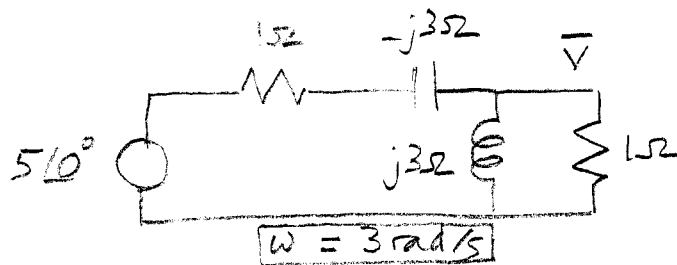 1Ω
-j3Ω
V̅
5∠0°
j3Ω
1Ω
ω = 3 rad/s